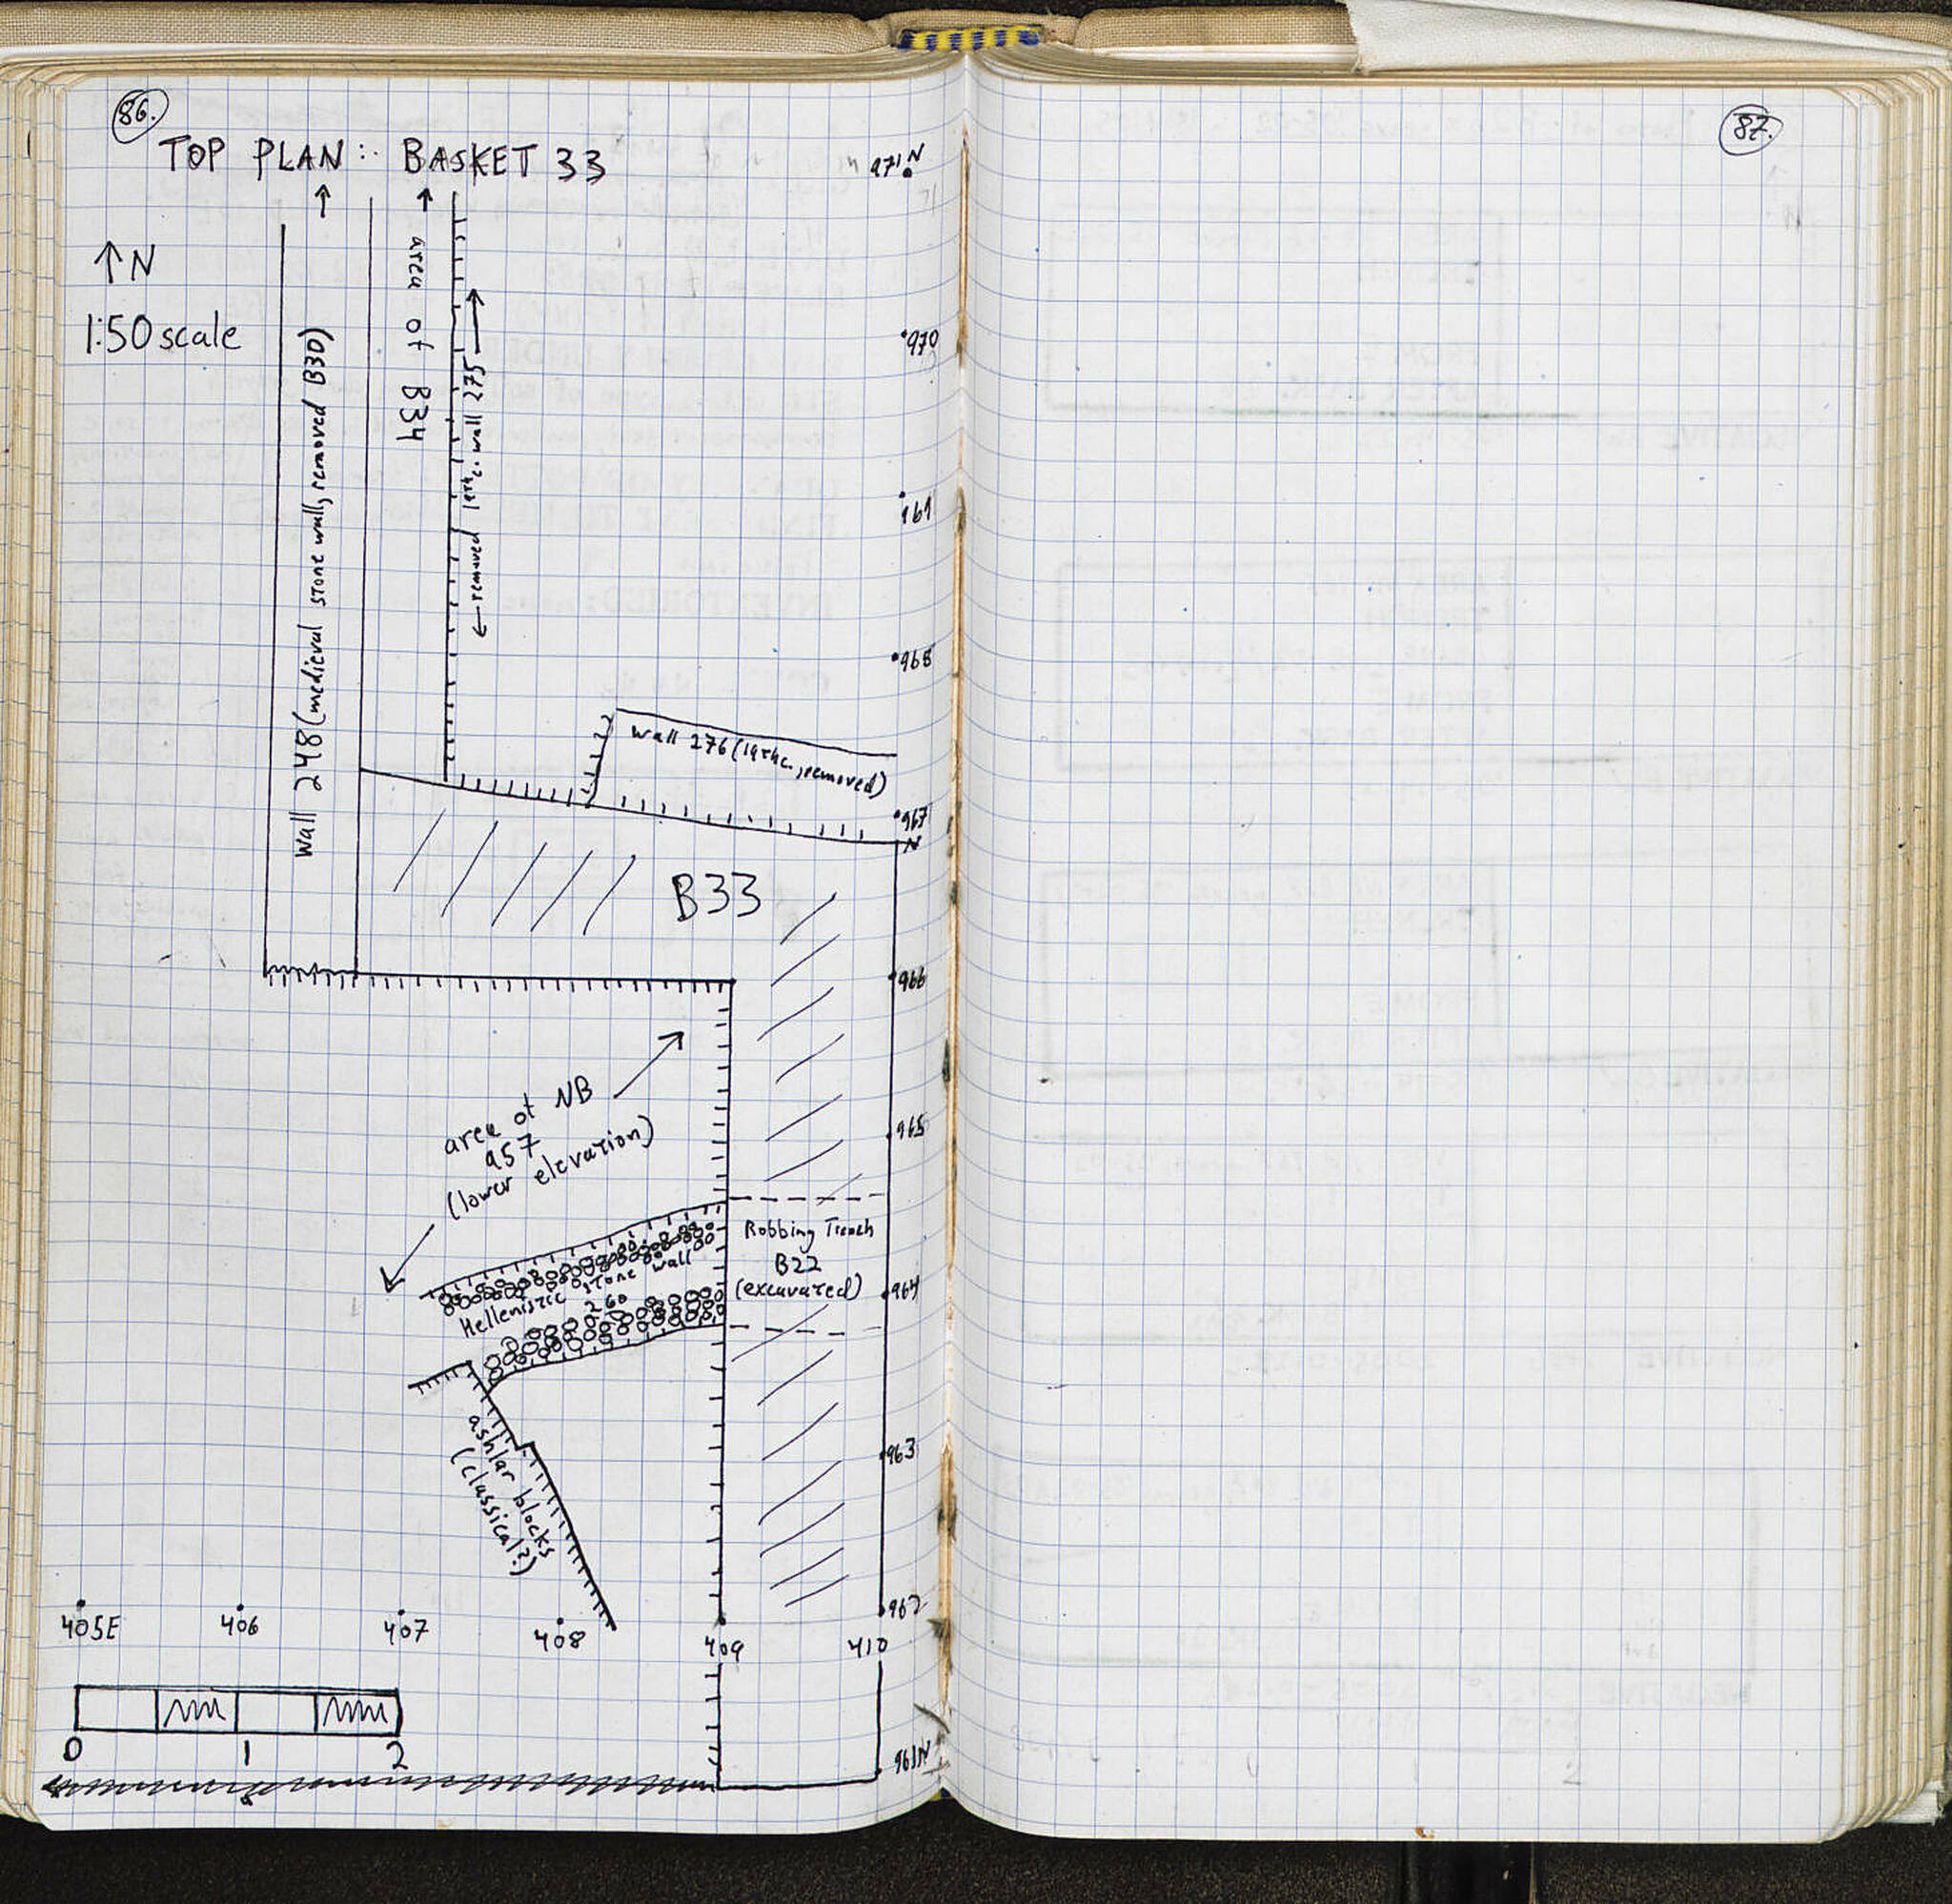 86.
TOP PLAN: BASKET 33
971N
↑N
1:50 scale
wall 248 (medieval stone wall, removed B30)
area of B34
← removed 19th c. wall 275 →
970
969
968
wall 276 (19th c., removed)
967
N
B33
966
area of NB
957
(lower elevation)
965
Robbing Trench
B22
(excavated)
Hellenistic stone wall
260
964
ashlar blocks
(classical?)
963
962
405E 406 407 408 409 410
0 1 2
961N
87.